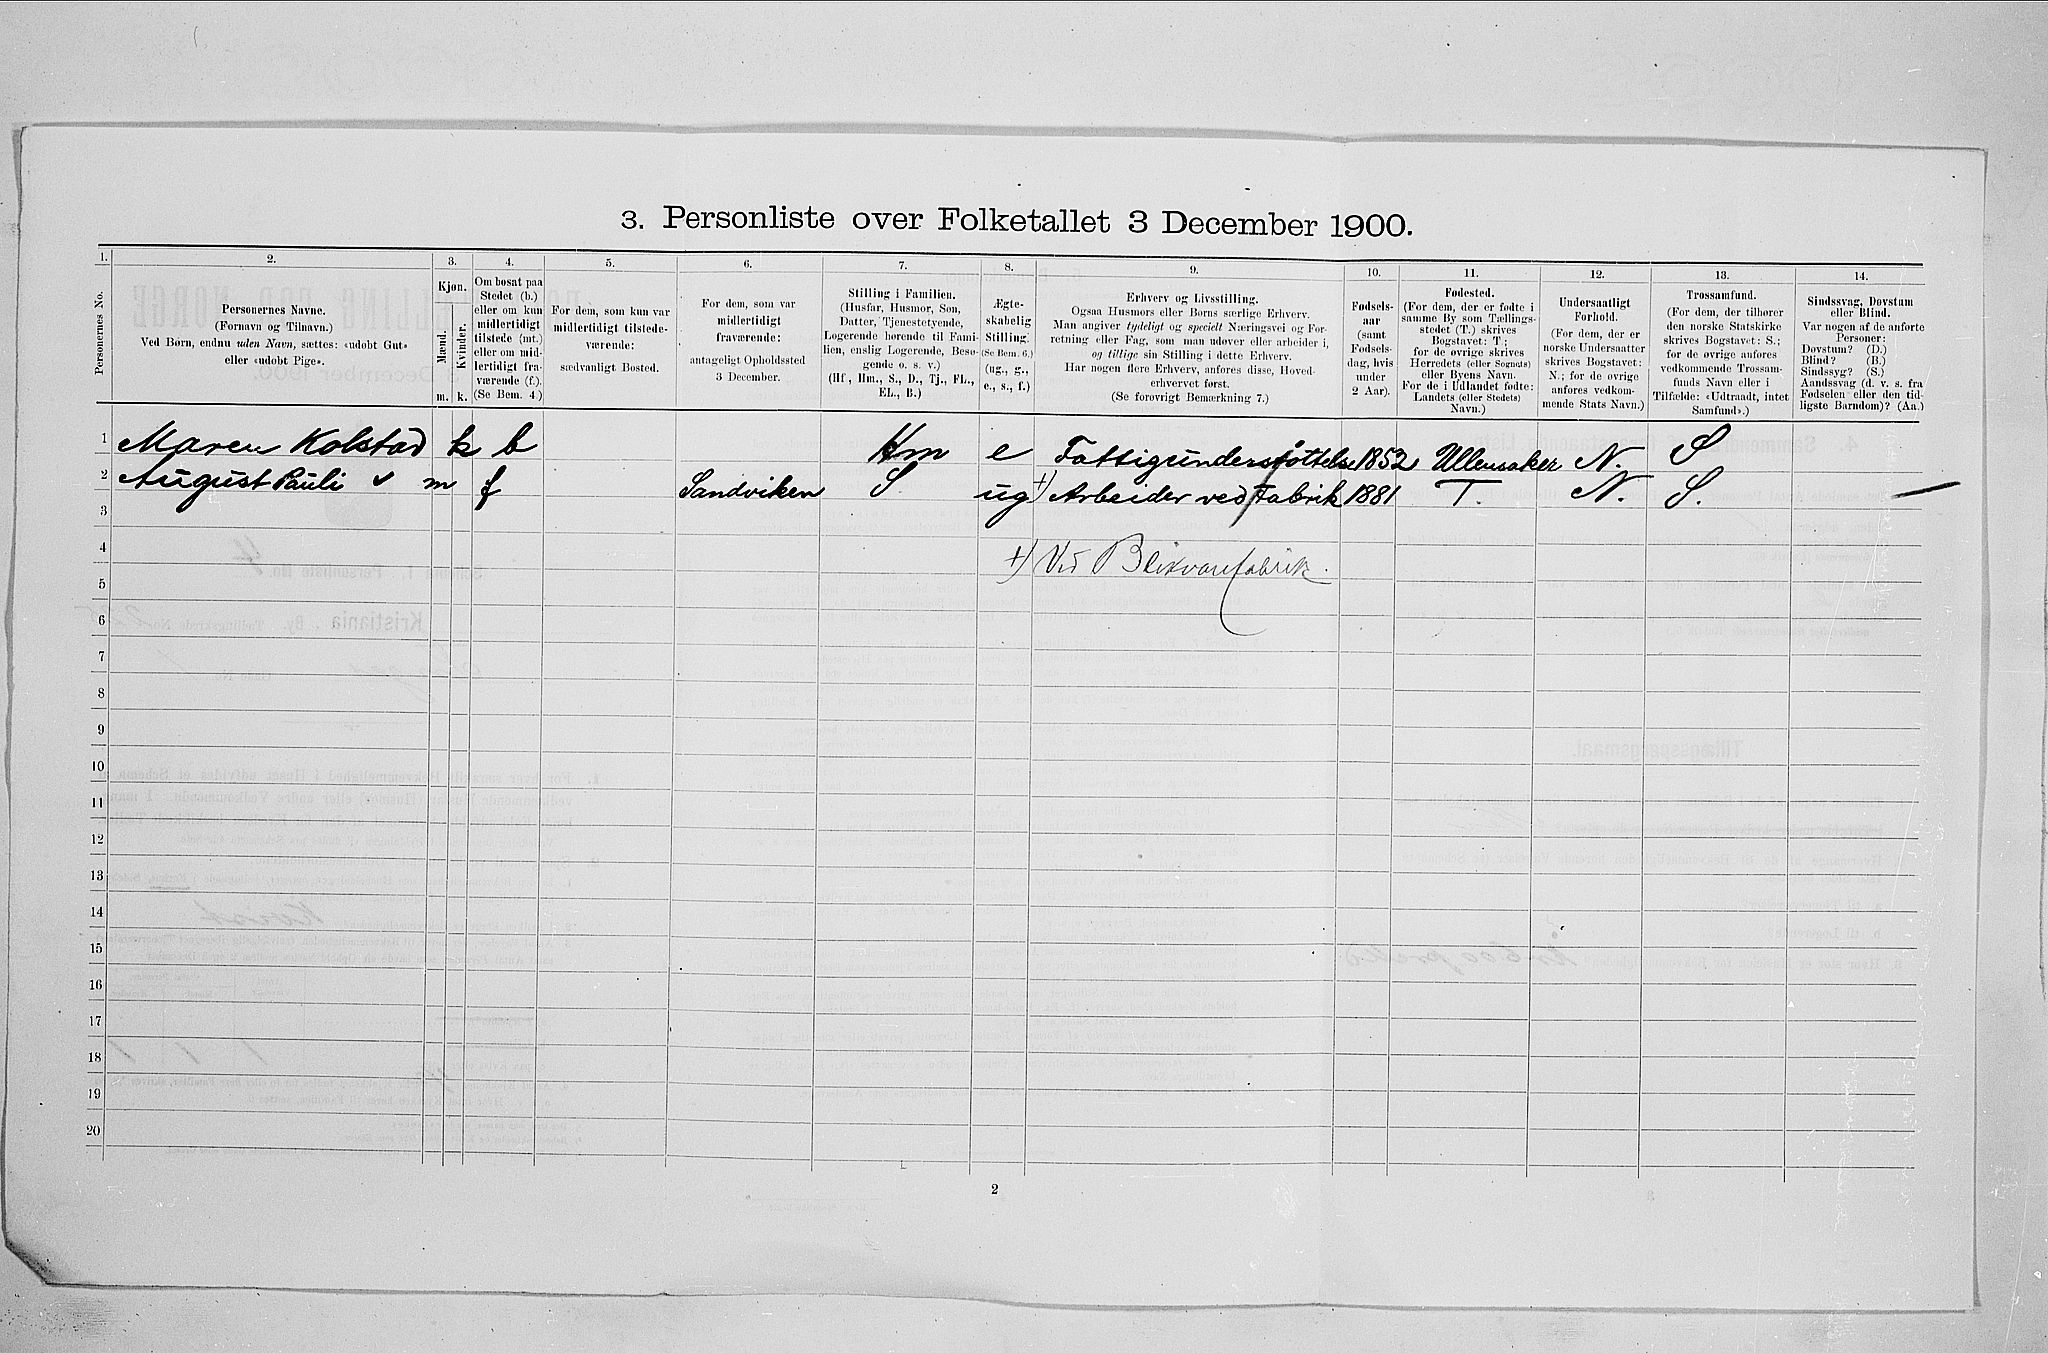 3. Personliste over Folketallet 3 December 1900.
1. 2. 3. 4. 5. 6. 7. 8. 9. 10. 11. 12. 13. 14.
Personernes No.
Personernes Navne.
(Fornavn og Tilnavn.)
Ved Børn, endnu uden Navn, sættes: «udøbt Gut»
eller «udøbt Pige».
Kjøn.
Mænd.
Kvinder.
m. k.
Om bosat paa
Stedet (b.)
eller om kun
midlertidigt
tilstede (mt.)
eller om mid-
lertidigt fra-
værende (f.).
(Se Bem. 4.)
For dem, som kun var
midlertidigt tilstede-
værende:
sædvanligt Bosted.
For dem, som var
midlertidigt
fraværende:
antageligt Opholdssted
3 December.
Stilling i Familien.
(Husfar, Husmor, Søn,
Datter, Tjenestetyende,
Logerende hørende til Fami-
lien, enslig Logerende, Besø-
gende o. s. v.)
(Hf., Hm., S., D., Tj., FL.,
EL., B.)
Ægte-
skabelig
Stilling.
(Se Bem. 6.)
(ug., g.,
e., s., f.)
Erhverv og Livsstilling.
Ogsaa Husmors eller Børns særlige Erhverv.
Man angiver tydeligt og specielt Næringsvei og For-
retning eller Fag, som man udøver eller arbeider i,
og tillige sin Stilling i dette Erhverv.
Har nogen flere Erhverv, anføres disse, Hoved-
erhvervet først.
(Se forøvrigt Bemærkning 7.)
Fødsels-
aar
(samt
Fødsels-
dag, hvis
under
2 Aar).
Fødested.
(For dem, der er fødte i
samme By som Tællings-
stedet (T.) skrives
Bogstavet: T.;
for de øvrige skrives
Herredets (eller Sognets)
eller Byens Navn.
For de i Udlandet fødte:
Landets (eller Stedets)
Navn.)
Undersaatligt
Forhold.
(For dem, der er
norske Undersaatter
skrives Bogstavet:
N.; for de øvrige
anføres vedkom-
mende Stats Navn.)
Trossamfund.
(For dem, der tilhører
den norske Statskirke
skrives Bogstavet: S.;
for de øvrige anføres
vedkommende Trossam-
funds Navn eller i
Tilfælde: «Udtraadt, intet
Samfund».)
Sindssvag, Døvstum
eller Blind.
Var nogen af de anførte
Personer:
Døvstum? (D.)
Blind? (B.)
Sindssyg? (S.)
Aandssvag (d. v. s. fra
Fødselen eller den tid-
ligste Barndom)? (Aa.)
1 Maren Kolstad k b Hm e Fattigunderstøttelse 1852 Ullensaker N. S
2 August Pauli v m f Sandviken S. ug +) Arbeider ved Fabrik 1881 T. N. S. —
3
4 +) Ved Blikvarefabrik.
5
6
7
8
9
10
11
12
13
14
15
16
17
18
19
20
2